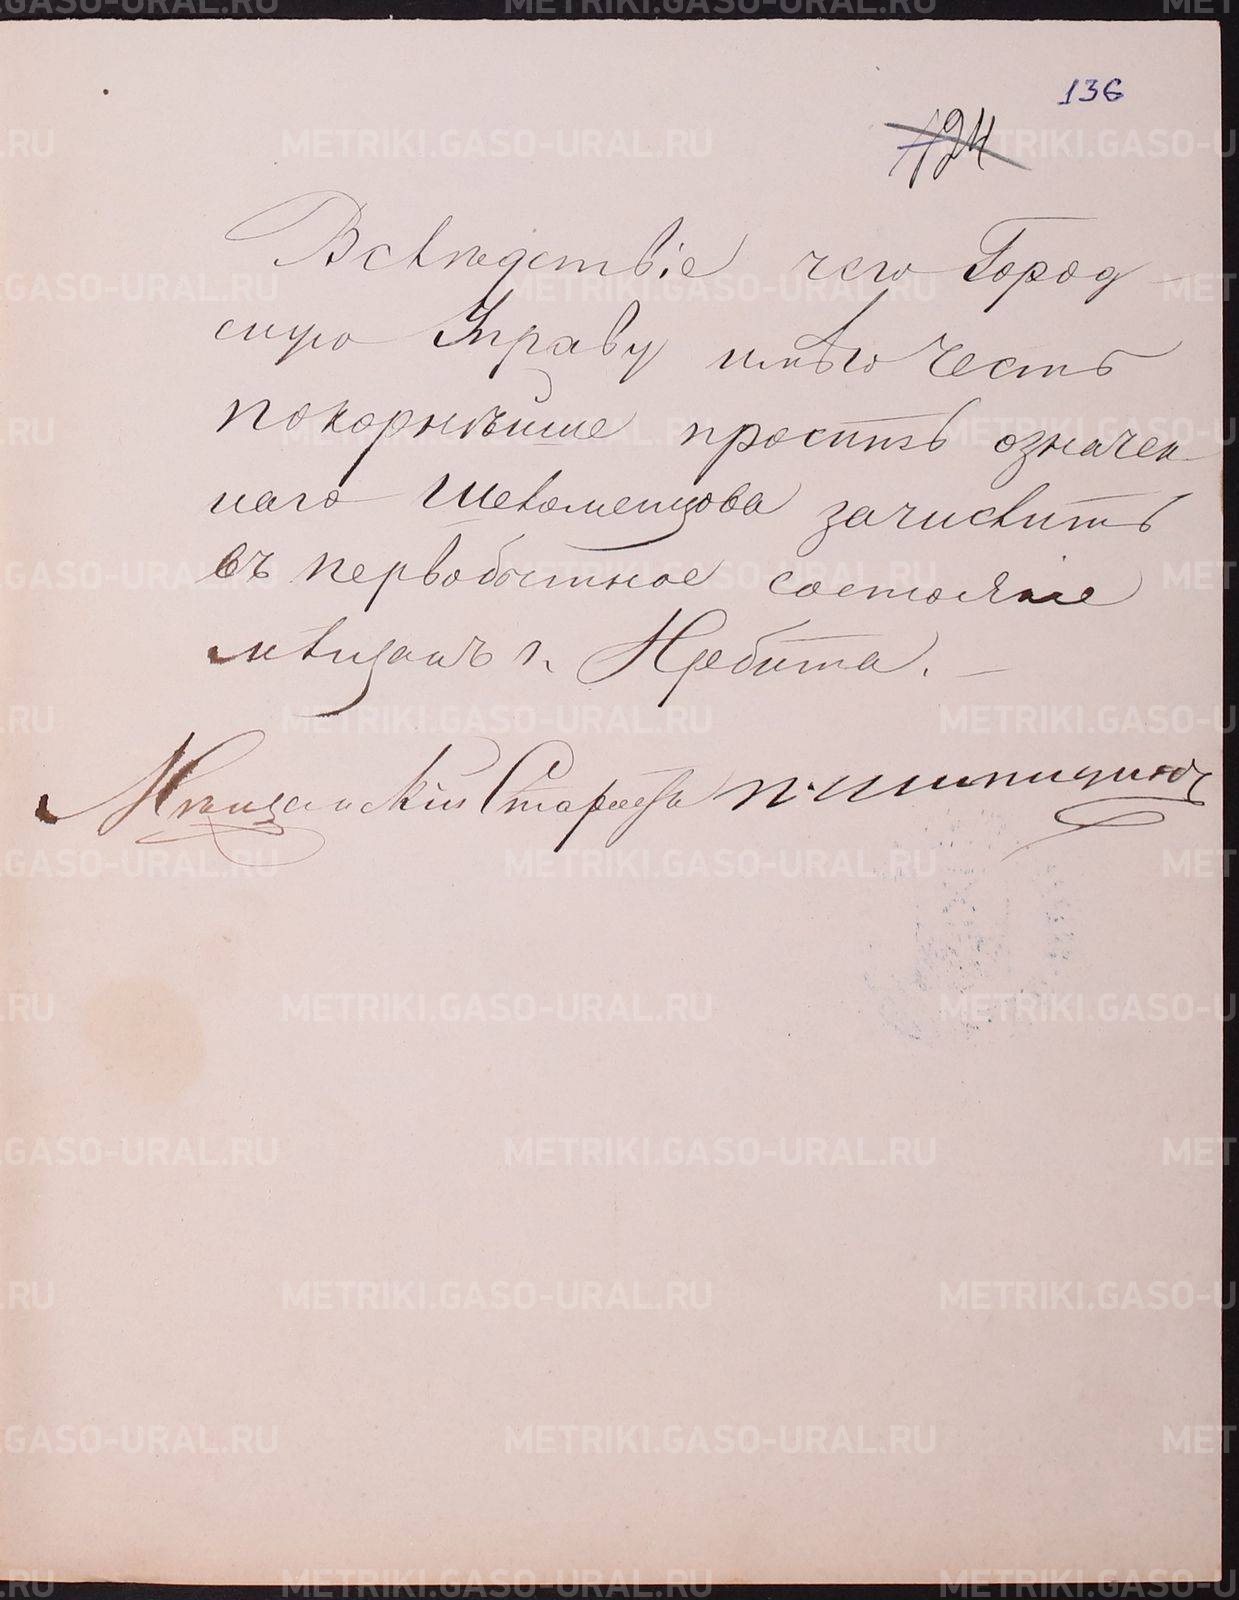 136
124
Вслѣдствіе чего Город
скую Управу имѣю честь
покорнѣйше просить означен
наго Шеломенцова зачислить
въ первобытное состояніе
мѣщанъ г. Ирбита.
Мѣщанскій Староста П. Шипицинъ